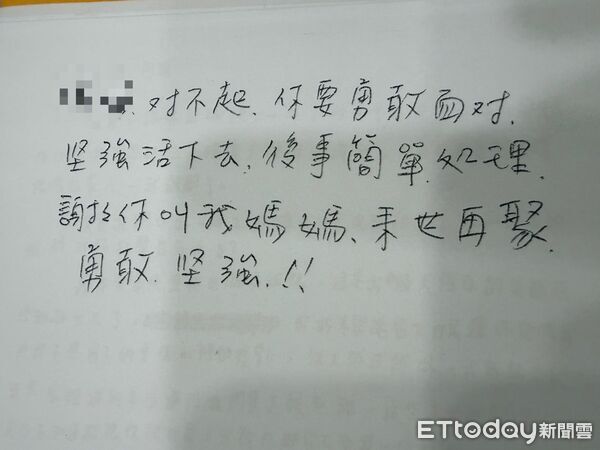 对不起.你要勇敢面对.
坚強活下去,後事簡單処理.
謝谢你叫我媽媽、来世再聚.
勇敢.坚強.!!
ETtoday新聞雲